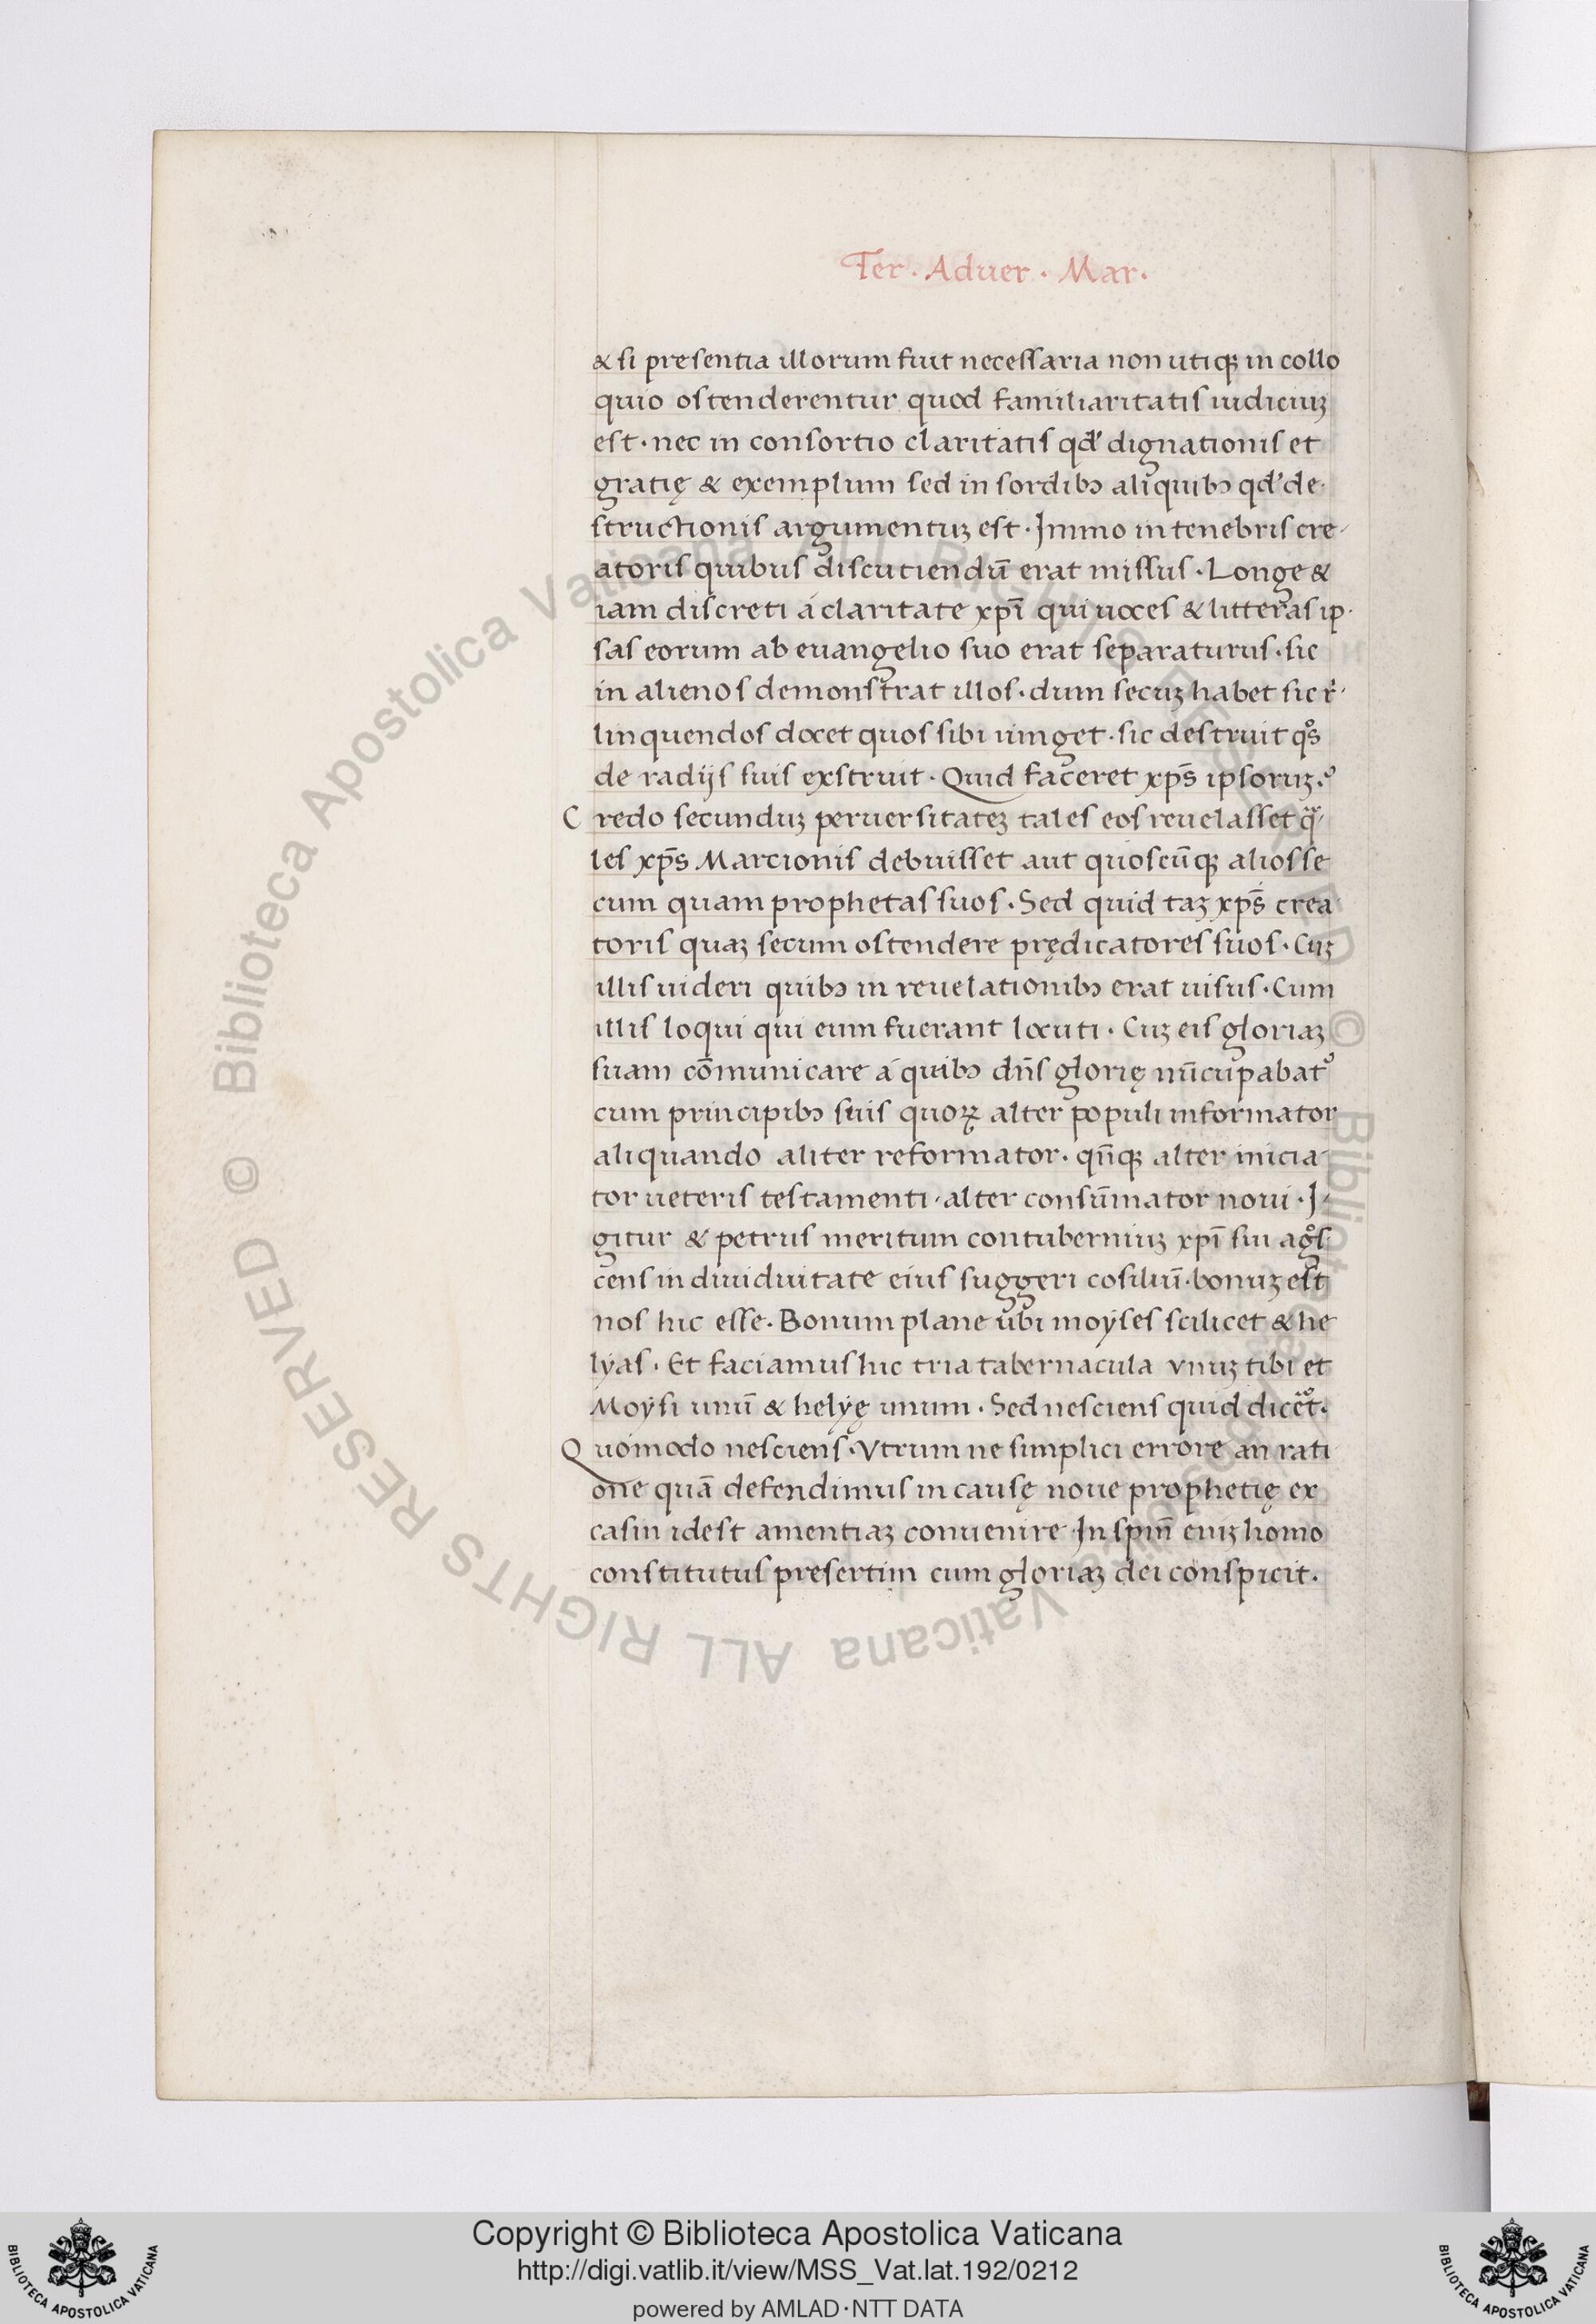 Ter . Aduer . Mar.
& si presentia illorum fuit necessaria non utiqꝫ in collo
quio ostenderentur quod familiaritatis iudiciuꝫ
est · nec in consortio claritatis qd' dignationis et
gratię & exemplum sed in sordibꝰ aliquibꝰ qd' de-
structionis argumentuꝫ est · Immo in tenebris cre-
atoris quibus discutiendū erat missus · Longe &
iam discreti á claritate xpī qui uoces & litteras ip-
sas eorum ab euangelio suo erat separaturus · sic
in alienos demonstrat illos · dum secuꝫ habet sic r̓-
linquendos docet quos sibi uinget · sic destruit qͦs
de radijs suis exstruit · Quid faceret xp̄s ipsoruꝫ ·̓
Credo secunduꝫ peruersitateꝫ tales eos reuelasset qͣ-
les xp̄s Marcionis debuisset aut quoscūqꝫ alios se
cum quam prophetas suos · Sed quid taꝫ xp̄s crea
toris quaꝫ secum ostendere prędicatores suos · Cuꝫ
illis uideri quibꝰ in reuelationibꝰ erat uisus · Cum
illis loqui qui eum fuerant locuti · Cuꝫ eis gloriaꝫ
suam cōmunicare á quibꝰ dn̄s glorię nūcupabat᷑
cum principibꝰ suis quoꝝ alter populi informator
aliquando aliter reformator · qn̄qꝫ alter inicia-
tor ueteris testamenti · alter consūmator noui · I-
gitur & petrus meritum contuberniuꝫ xpī sui agͦs
cens indiuiduitate eius suggeri cosiliuī · bonuꝫ est
nos hic esse · Bonum plane ubi moyses scilicet & he
lyas · Et faciamus hic tria tabernacula vnuꝫ tibi et
Moysi unū & helyę unum · Sed nesciens quid dicet᷑ ·
Quomodo nesciens · Vtrum ne simplici errore an rati
one quā defendimus in causę noue prophetię ex
casin idest amentiaꝫ conuenire · In spm̄ eniꝫ homo
constitutus presertim cum gloriaꝫ dei conspicit ·
Copyright © Biblioteca Apostolica Vaticana
http://digi.vatlib.it/view/MSS_Vat.lat.192/0212
powered by AMLAD·NTT DATA
BIBLIOTECA APOSTOLICA VATICANA
BIBLIOTECA APOSTOLICA VATICANA
© Biblioteca Apostolica Vaticana ALL RIGHTS RESERVED © Biblioteca Apostolica Vaticana ALL RIGHTS RESERVED